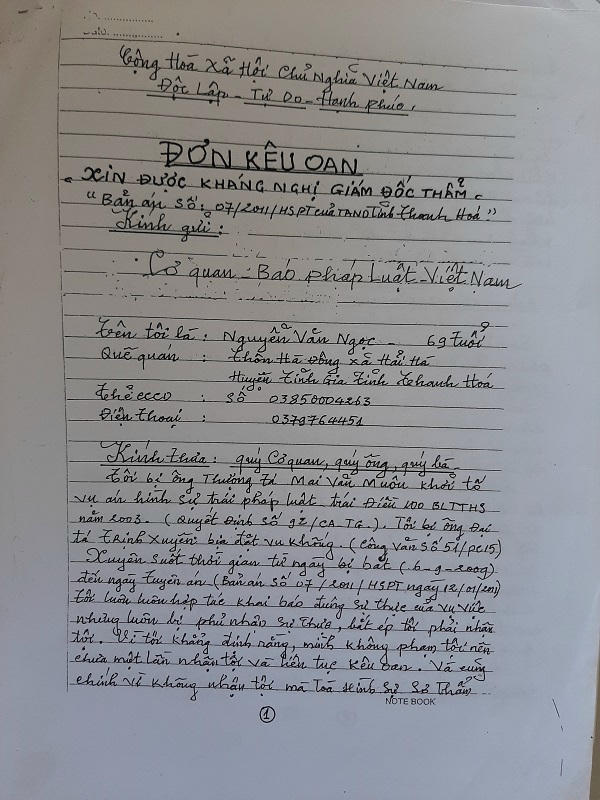 Cộng Hoà Xã Hội Chủ Nghĩa Việt Nam
Độc Lập - Tự Do - Hạnh phúc.
ĐƠN KÊU OAN
XIN ĐƯỢC KHÁNG NGHỊ GIÁM ĐỐC THẨM
"Bản án số: 07/2011/HSPT của TAND Tỉnh Thanh Hoá"
Kính gửi:
Cơ quan - Báo pháp Luật - Việt Nam
Tên tôi là: Nguyễn Văn Ngọc - 69 tuổi
Quê quán : thôn Hà Đông xã Hải Hà
Huyện Tĩnh Gia Tỉnh Thanh Hoá
Thẻ CCCD : số 03850004263
Điện thoại : 0379764451
Kính thưa: quý Cơ quan, quý ông, quý bà
Tôi bị ông Thượng Tá Mai Văn Muôn khởi tố
vụ án hình sự trái pháp luật trái Điều 100 BLTTHS
năm 2003. (Quyết Định số 92/CA.TG.). Tôi bị ông Đại
tá Trịnh Xuyên bịa đặt vu khống. (Công văn số 51/PC15)
Xuyên suốt thời gian từ ngày bị bắt (6-9-2009)
đến ngày tuyên án (Bản án số 07/2011/HSPT ngày 12/01/2011)
tôi luôn luôn hợp tác khai báo đúng sự thực của vụ việc
nhưng luôn bị phủ nhận sự thực, bắt ép tôi phải nhận
tội. Vì tôi khẳng định rằng, mình không phạm tội nên
chưa một lần nhận tội và liên tục kêu oan. Và cũng
chính vì không nhận tội mà Toà Hình sự sơ thẩm
NOTE BOOK
1